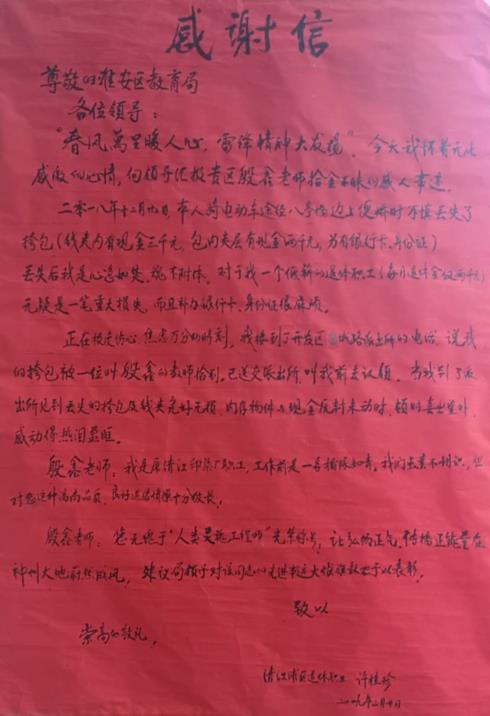 感谢信
尊敬的淮安区教育局
各位领导：
“春风万里暖人心，雷锋精神大发扬”。今天我怀着无比
感激的心情，向领导汇报贵区殷鑫老师拾金不昧的感人事迹。
二零一八年十二月九日，本人骑电动车途经八亭桥边上便时时不慎丢失了
挎包（钱夹内有现金三千元，包内夹层有现金两千元，另有银行卡、身份证）
丢失后我是心急如焚，魂不附体，对于我一个低薪的退休职工（每月退休金仅两千元）
无疑是一笔重大损失，而且补办银行卡、身份证很麻烦。
正在极度伤心、焦虑万分的时刻，我接到了开发区 城路派出所的电话，说我
的挎包被一位叫殷鑫的教师拾到，已送交派出所，叫我前去认领。当我到了派
出所见到丢失的挎包及钱夹完好无损，内存物件及现金原封未动时，顿时喜出望外，
感动得热泪盈眶。
殷鑫老师，我是原清江印染厂职工，工作前是一名插队知青。我们素不相识，但
对您这种高尚品质、良好道德情操十分敬佩。
殷鑫老师：您无愧于“人类灵魂工程师”光荣称号，让弘扬正气、传播正能量在
神州大地蔚然成风，建议局领导对该同志的先进事迹大张旗鼓给予以表彰。
致以
崇高的敬礼。
清江浦区退休职工 许桂珍
二〇一九年二月 日